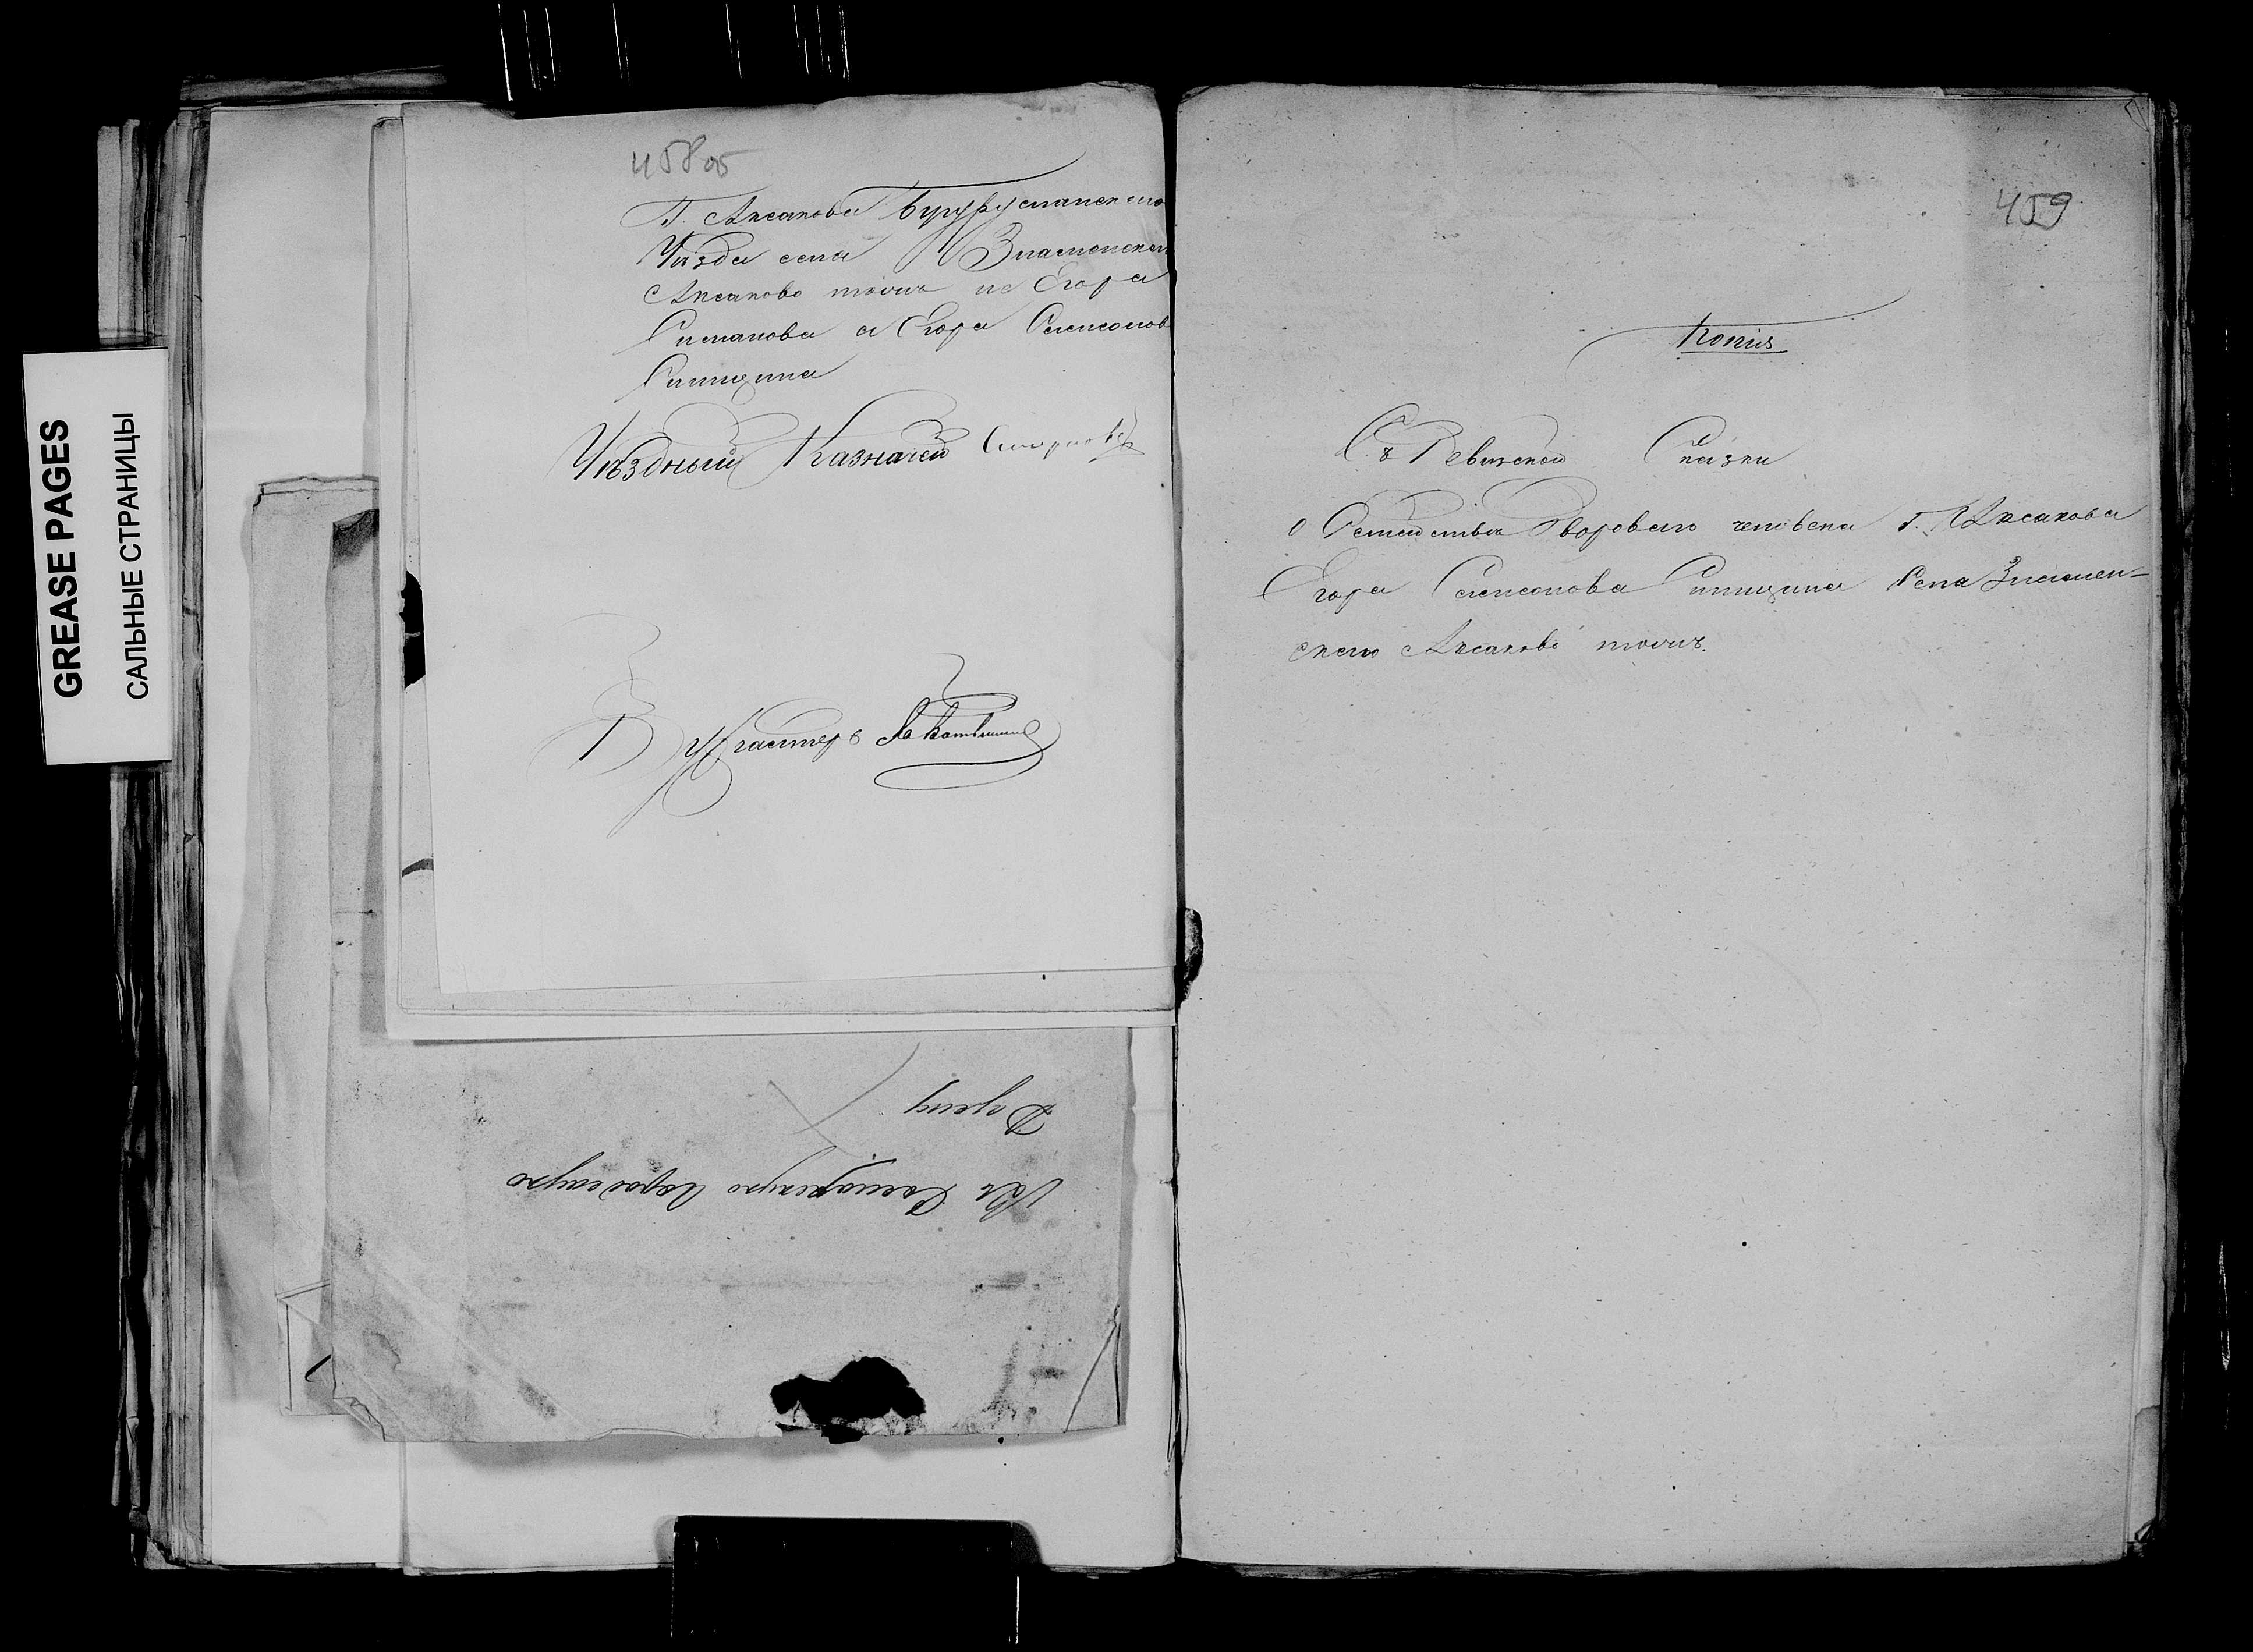 GREASE PAGES
САЛЬНЫЕ СТРАНИЦЫ
458об
Г. Аксакова Бугурусланскаго
Уѣзда села Знаменскаго
Аксаково тожъ не Егора
Степанова а Егора Самсонов
Синицына
Уѣздный Казначей Смирновъ
Бухгалтеръ
Думу
Въ Самарскую Городскую
459
Копія
Съ Ревизской Сказки
о Семействѣ дворового человека г. Аксакова
Егора Самсонова Синицына Села Знамен-
скаго Аксаково тожъ.